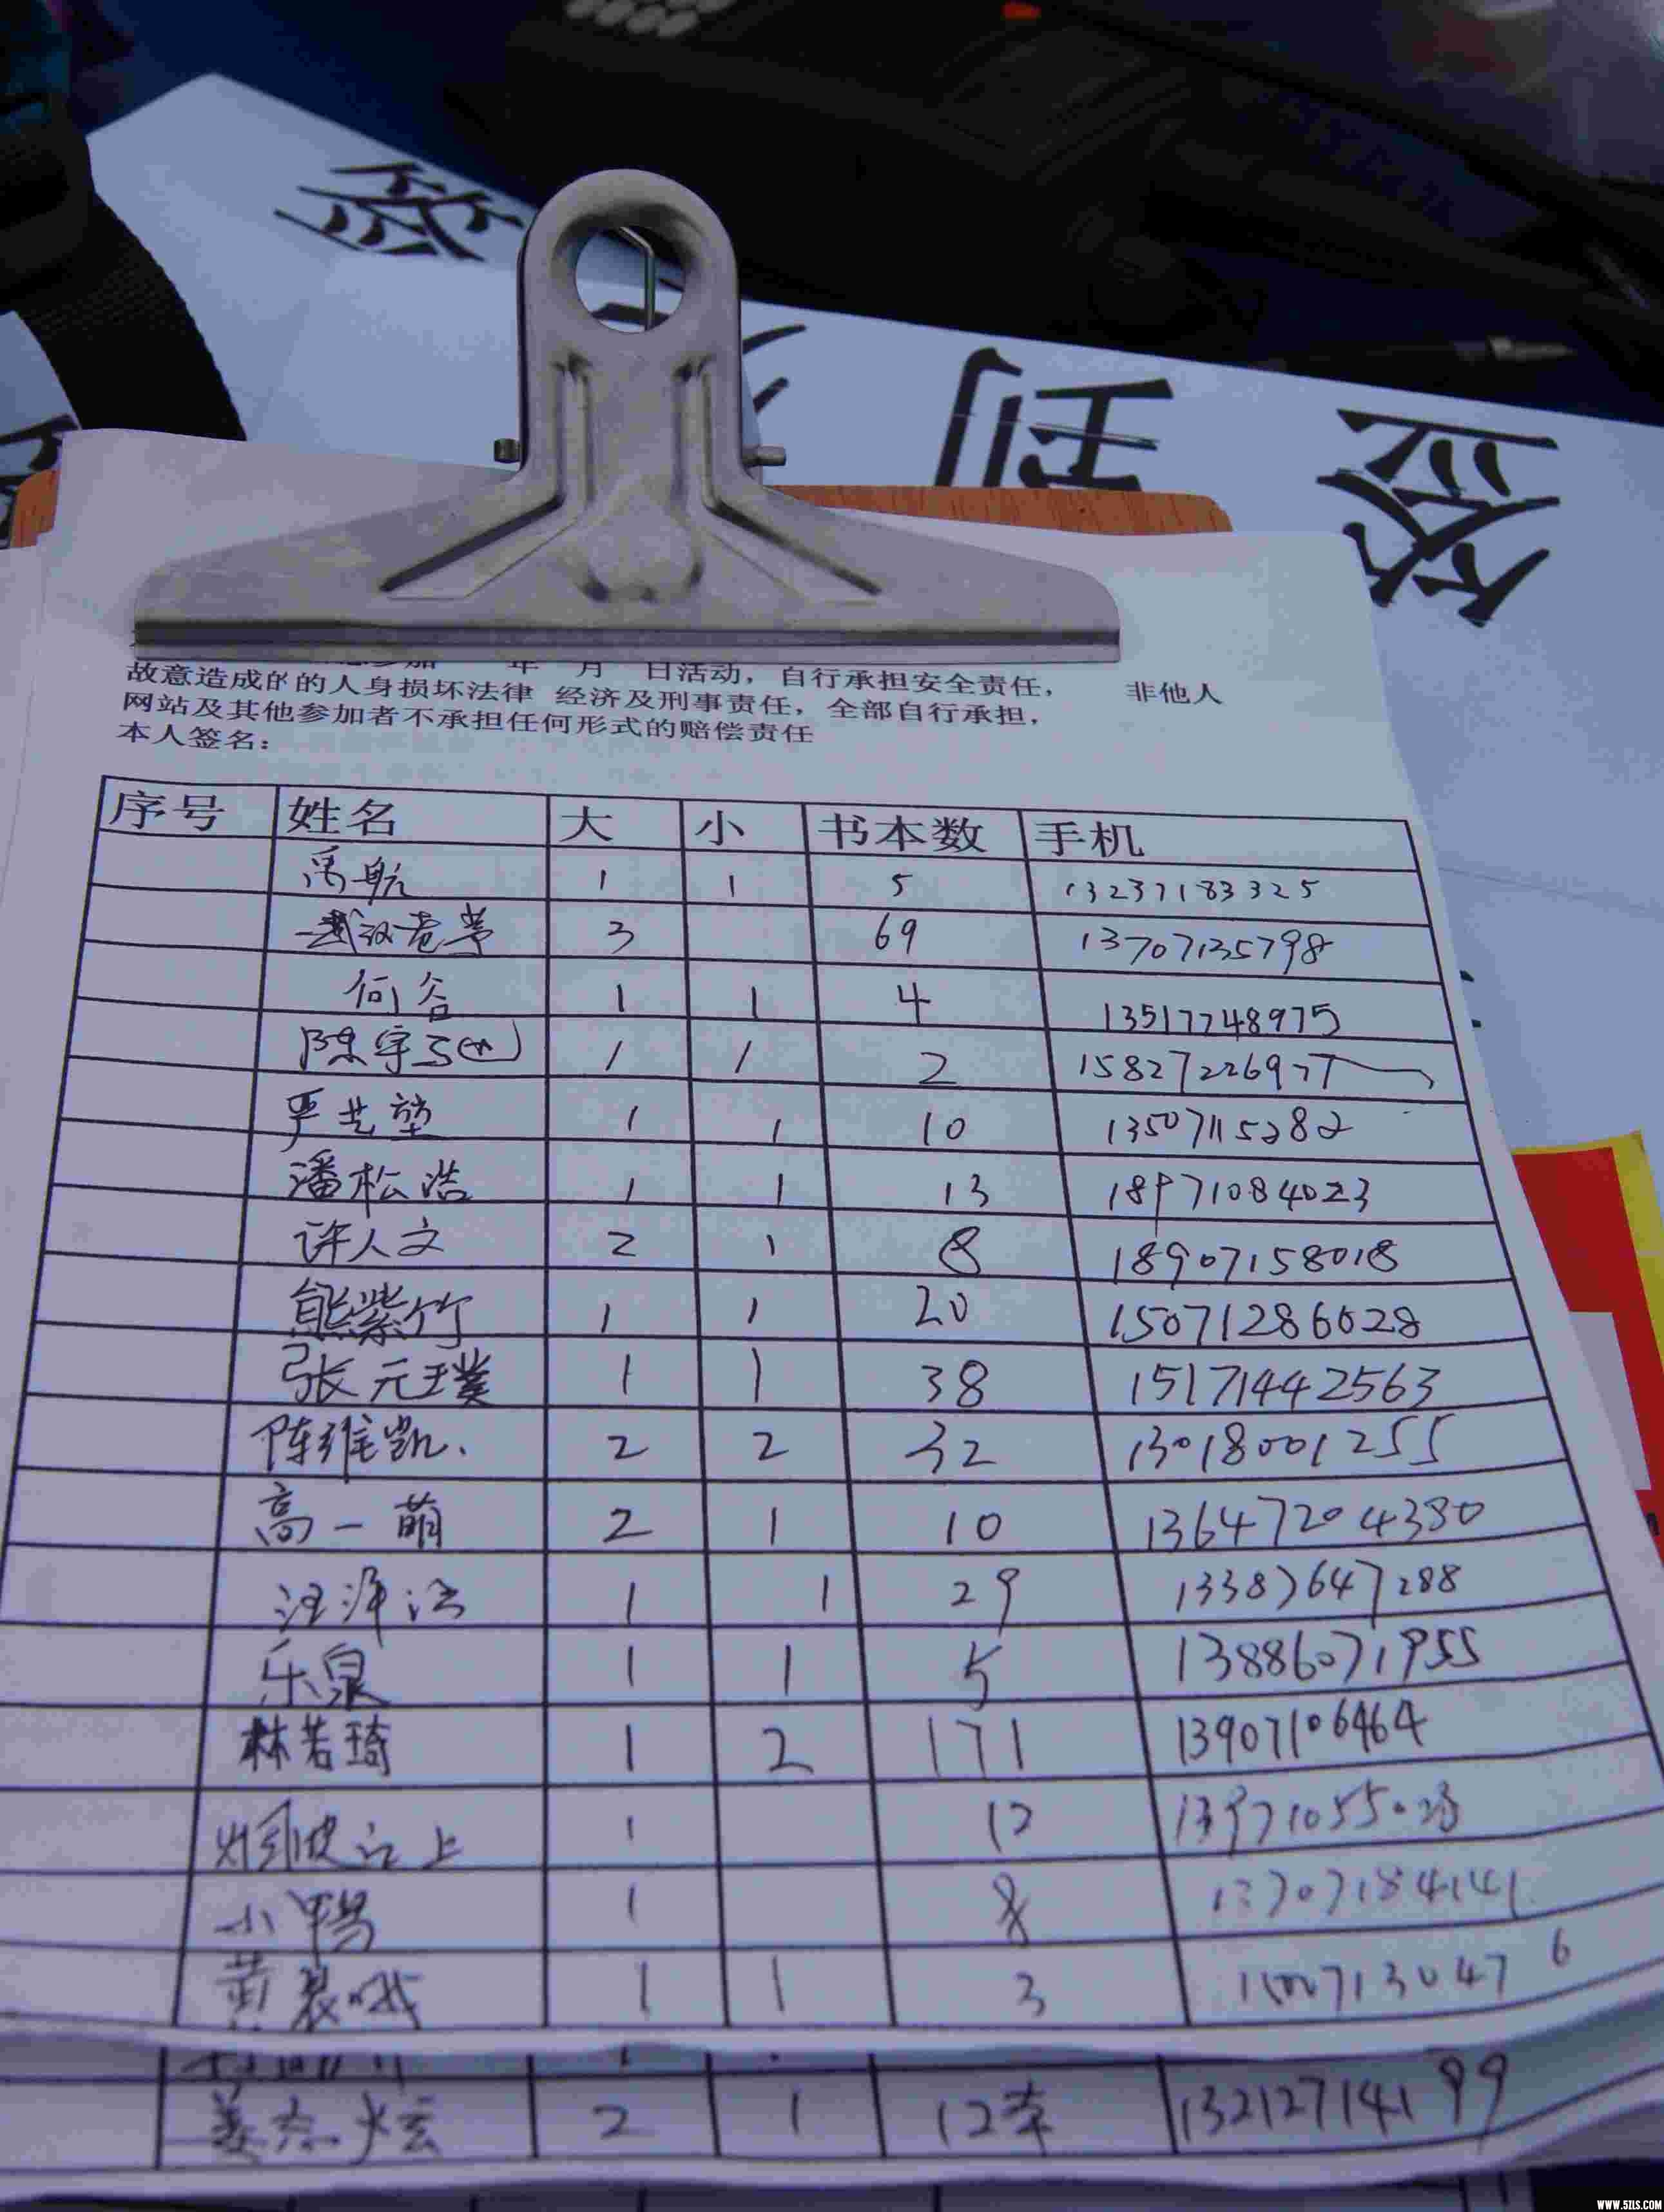 签
到
签
年 月 日活动，自行承担安全责任， 非他人
故意造成的的人身损坏法律 经济及刑事责任，全部自行承担，
网站及其他参加者不承担任何形式的赔偿责任
本人签名：
序号 姓名 大 小 书本数 手机
禹航 1 1 5 13237183325
3 69 13707135798
何谷 1 1 4 13517748975
陈宇 1 1 2 15827226977
严艺堃 1 1 10 13507115282
潘松浩 1 1 13 18971084023
许人文 2 1 8 18907158018
熊紫竹 1 1 20 15071286028
张元璞 1 1 38 15171442563
陈维凯 2 2 32 13018001255
高一萌 2 1 10 13647204380
汪泽 1 1 29 13387647288
乐泉 1 1 5 13886071955
林若琦 1 2 171 13907106464
上 1 12
小鸭 1 8 13707184141
黄 1 1 3
姜 2 1 12本 13212714199
WWW.51LS.COM